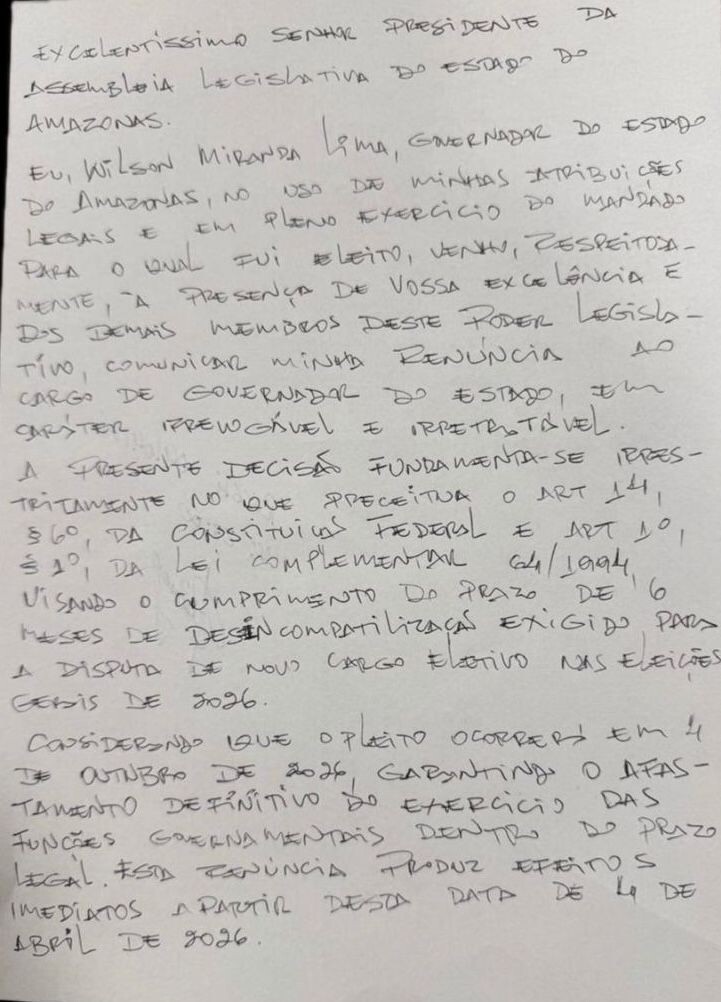 EXCELENTÍSSIMO SENHOR PRESIDENTE DA
ASSEMBLEIA LEGISLATIVA DO ESTADO DO
AMAZONAS.
EU, WILSON MIRANDA LIMA, GOVERNADOR DO ESTADO
DO AMAZONAS, NO USO DE MINHAS ATRIBUIÇÕES
LEGAIS E EM PLENO EXERCÍCIO DO MANDADO
PARA O QUAL FUI ELEITO, VENHO, RESPEITOSA-
MENTE, À PRESENÇA DE VOSSA EXCELÊNCIA E
DOS DEMAIS MEMBROS DESTE PODER LEGISLA-
TIVO, COMUNICAR MINHA RENÚNCIA AO
CARGO DE GOVERNADOR DO ESTADO, EM
CARÁTER IRREVOGÁVEL E IRRETRATÁVEL.
A PRESENTE DECISÃO FUNDAMENTA-SE IRRES-
TRITAMENTE NO QUE PRECEITUA O ART 14,
§ 6º, DA CONSTITUIÇÃO FEDERAL E ART 1º,
§ 1º, DA LEI COMPLEMENTAR 64/1994,
VISANDO O CUMPRIMENTO DO PRAZO DE 6
MESES DE DESINCOMPATILIZAÇÃO EXIGIDO PARA
A DISPUTA DE NOVO CARGO ELETIVO NAS ELEIÇÕES
GERAIS DE 2026.
CONSIDERANDO QUE O PLEITO OCORRERÁ EM 4
DE OUTUBRO DE 2026, GARANTINDO O AFAS-
TAMENTO DEFINITIVO DO EXERCÍCIO DAS
FUNÇÕES GOVERNAMENTAIS DENTRO DO PRAZO
LEGAL. ESTA RENÚNCIA PRODUZ EFEITOS
IMEDIATOS A PARTIR DESTA DATA DE 4 DE
ABRIL DE 2026.